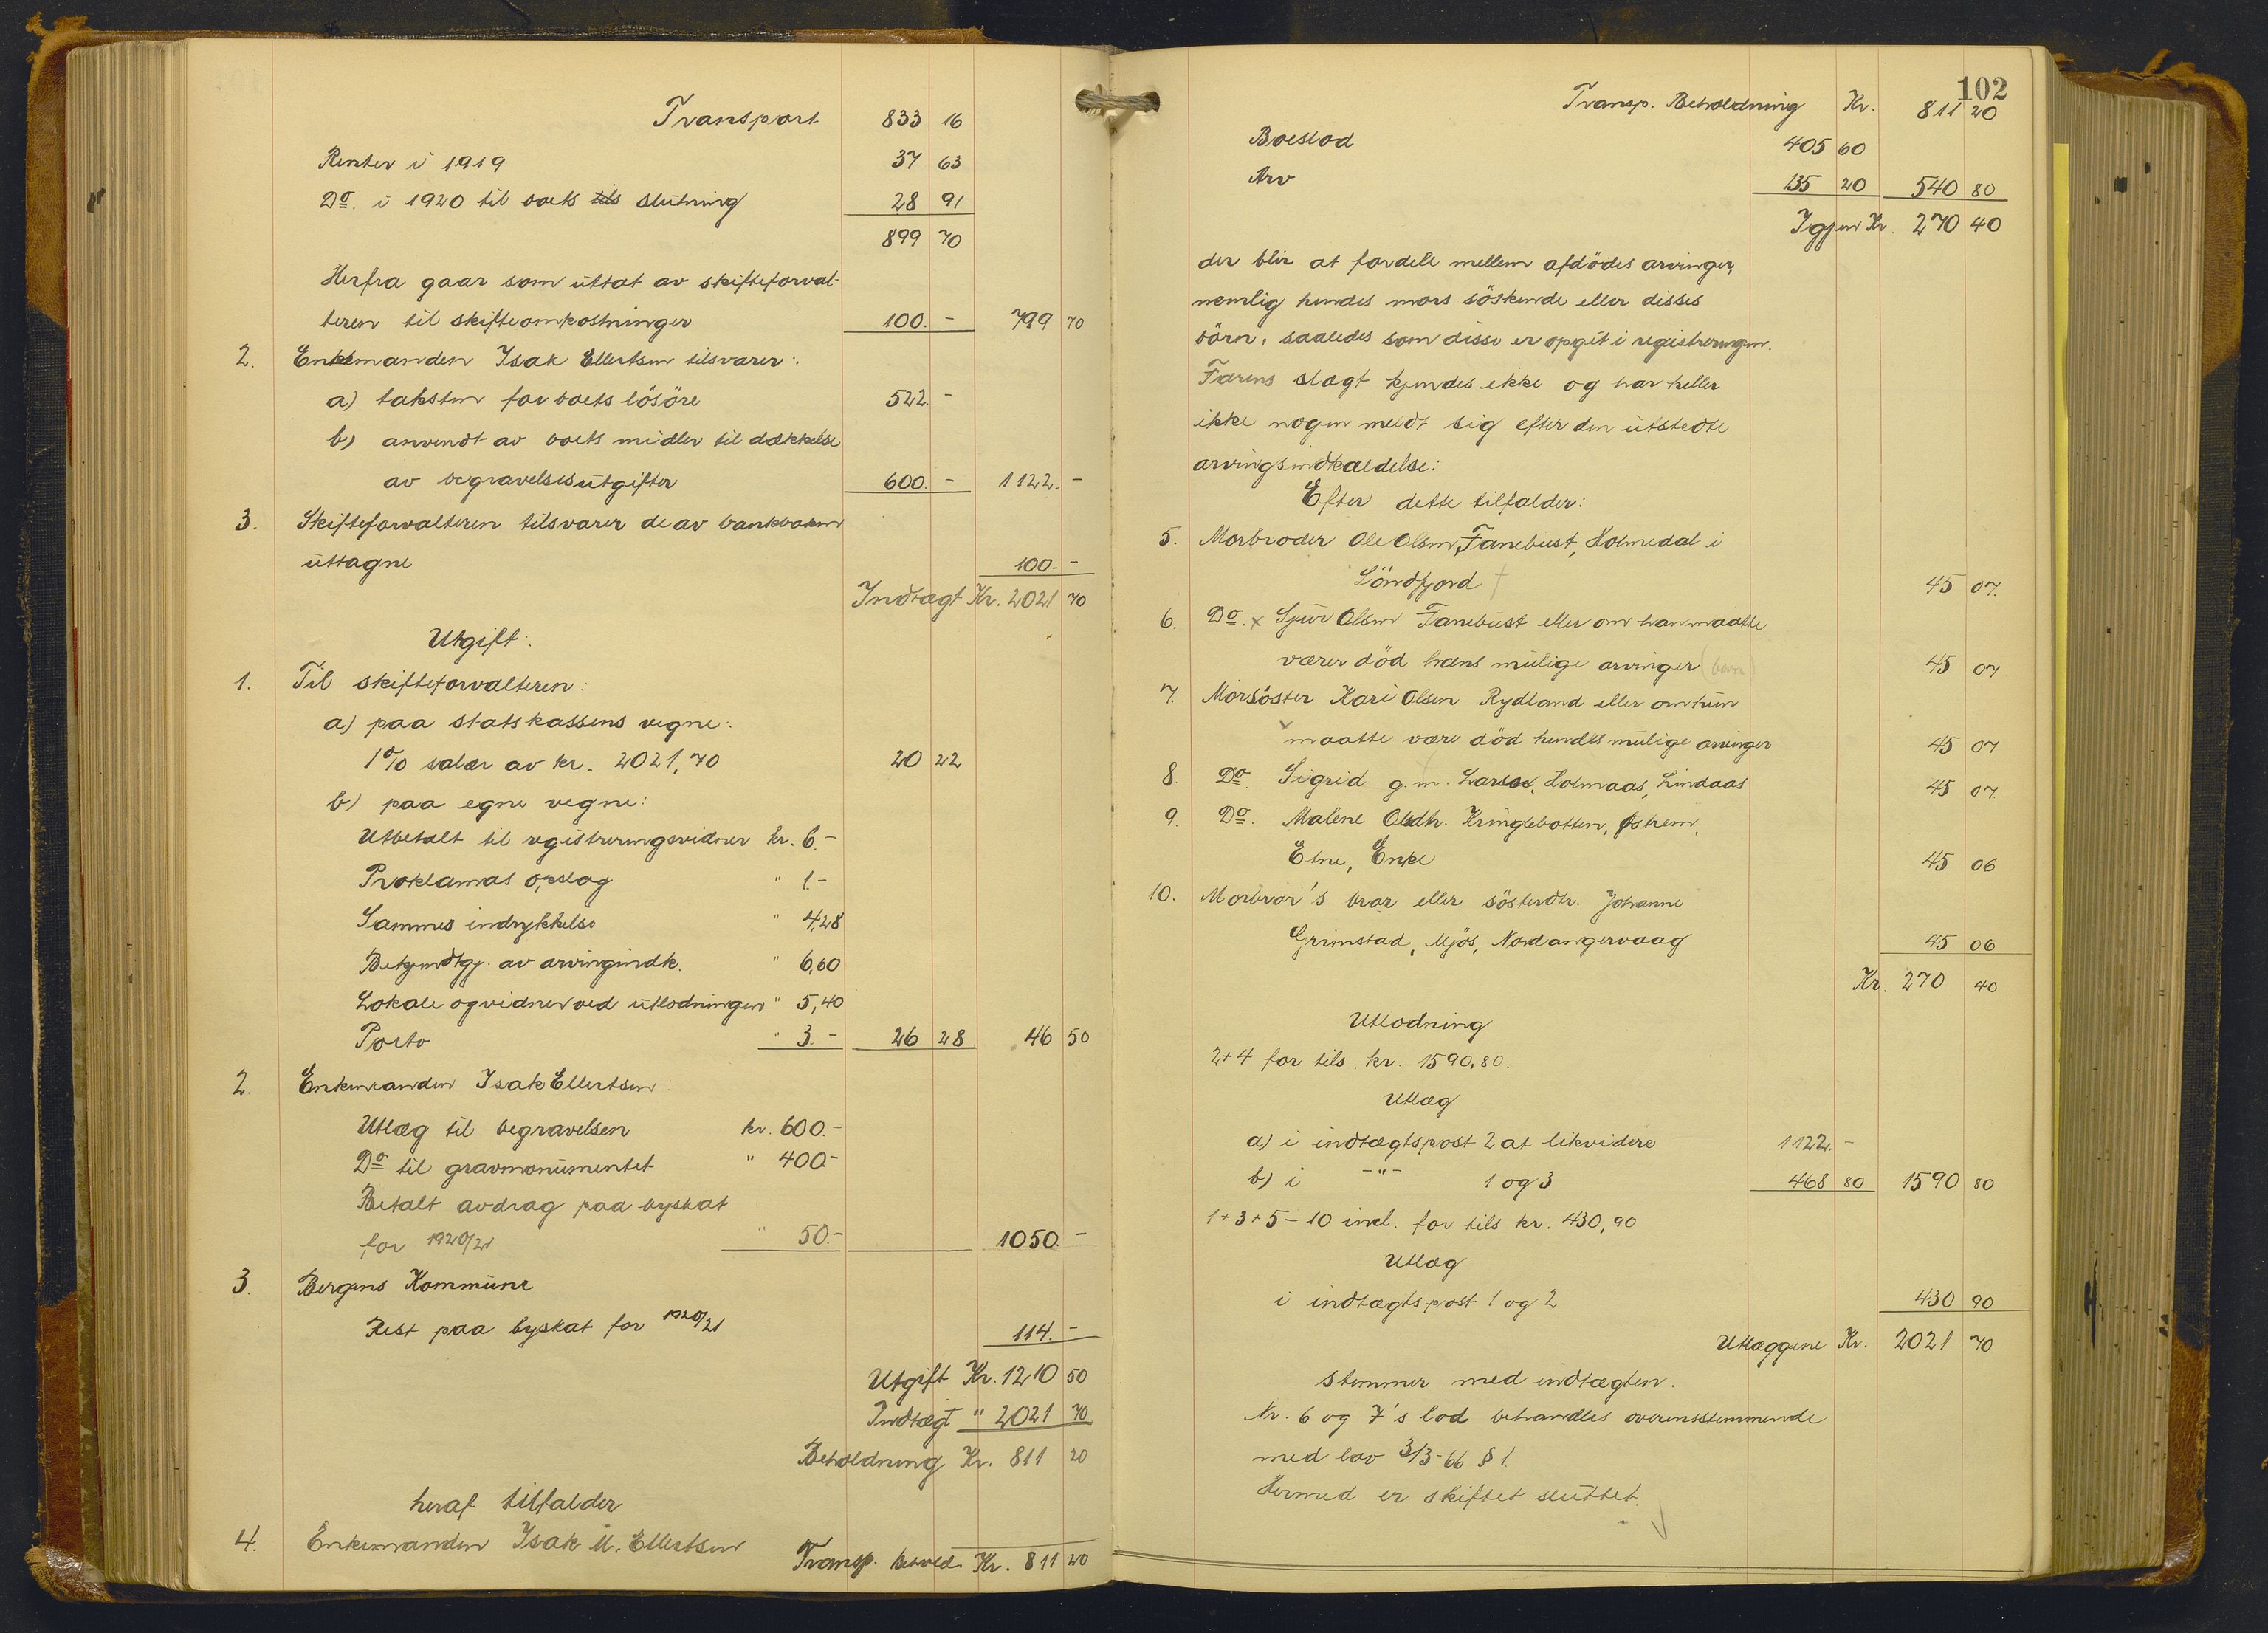 Transport 833 16
Renter i 1919 37 63
Do. i 1920 til boets tils slutning 28 91
899 70
Herfra gaar som uttat av skifteforval-
teren til skifteomkostninger 100.- 799 70
2. Enkemanden Isak Ellertsen tilsvarer:
a) taksten for boets lösöre 522.-
b) anvendt av boets midler til dækkelse
av begravelsesutgifter 600.- 1122.-
3. Skifteforvalteren tilsvarer de av bankboken
uttagne 100.-
Indtægt Kr. 2021 70
Utgift:
1. Til skifteforvalteren:
a) paa statskassens vegne:
1% salær av kr. 2021,70 20 22
b) paa egne vegne:
Utbetalt til registreringsvidner kr. 6.-
Proklamas opslag " 1-
Sammes indrykkelse " 4,28
Bekjendtgj. av arvingindk. " 6,60
Lokale og vidner ved utlodningen " 5,40
Porto " 3.- 26 28 46 50
2. Enkemanden Isak Ellertsen:
Utlæg til begravelsen kr. 600.-
Do til gravmonumentet " 400.-
Betalt avdrag paa byskat
for 1920/21 " 50.- 1050.-
3. Bergens Kommune
Rest paa byskat for 1920/21 114.-
Utgift Kr. 1210 50
Indtægt " 2021 70
Beholdning Kr. 811 20
heraf tilfalder
4. Enkemanden Isak M. Ellertsen
Transp. Behold. Kr. 811 20
102
Transp. Beholdning Kr. 811 20
Boeslod 405 60
Arv 135 20 540 80
Igjen Kr. 270 40
der blir at fordele mellem afdödes arvinger,
nemlig hendes mors söskende eller disses
börn, saaledes som disse er opgit i registreringen.
Farens slægt kjendes ikke og har heller
ikke nogen meldt sig efter den utstedte
arvingsindkaldelse:
Efter dette tilfalder:
5. Morbroder Ole Olsen Fanebust, Holmedal i
Söndfjord † 45 07.
6. Do. x Sjur Olsen Fanebust eller om han maatte
være död hans mulige arvinger (barn) 45 07
7. Morsöster Kari Olsen Rydland eller om hun
x maatte være död hendes mulige arvinger 45 07
8. Do. Sigrid g.m. Lars Holmaas, Lindaas 45 07.
9. Do. Malene Olsdtr. Kringlebotten, Östrem,
Etne, Enke 45 06
10. Morbrar's brar eller sösterdtr. Johanne
Grimstad, Mjös, Nordangervaag 45 06
Kr. 270 40
Utlodning
2+4 for tils. kr. 1590,80.
Utlæg
a) i indtægtspost 2 at likvidere 1122.-
b) i -"- 1 og 3 468 80 1590 80
1+3+5-10 incl. for tils kr. 430,90
Utlæg
i indtægtspost 1 og 2 430 90
Utlæggene Kr. 2021 70
stemmer med indtægten.
Nr. 6 og 7's lod behandles overensstemmende
med lov 3/3-66 § 1.
Hermed er skiftet sluttet.